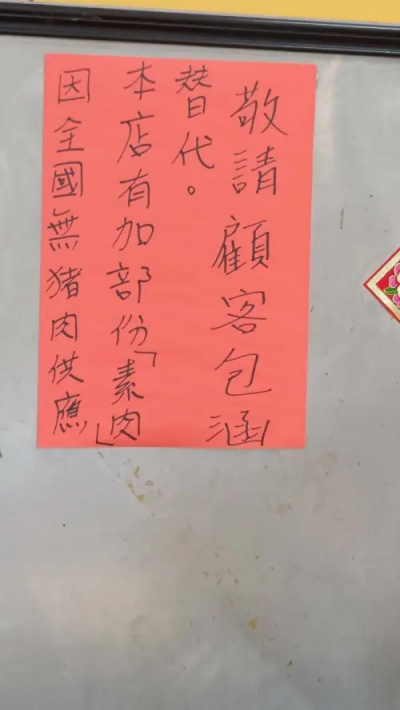 因全國無猪肉供應
本店有加部份「素肉」
替代。
敬請顧客包涵